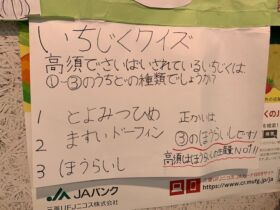 いちじくクイズ
高須でさいばいされているいちじくは
①~③のうちどの種類でしょうか?
1 とよみつひめ
2 ますいドーフィン
3 ほうらいし
正かいは
③のほうらいしです!
高須はほうらいしの生産No1!!
JAバンク
三菱UFJニコス株式会社
https://www.cr.mufg.jp